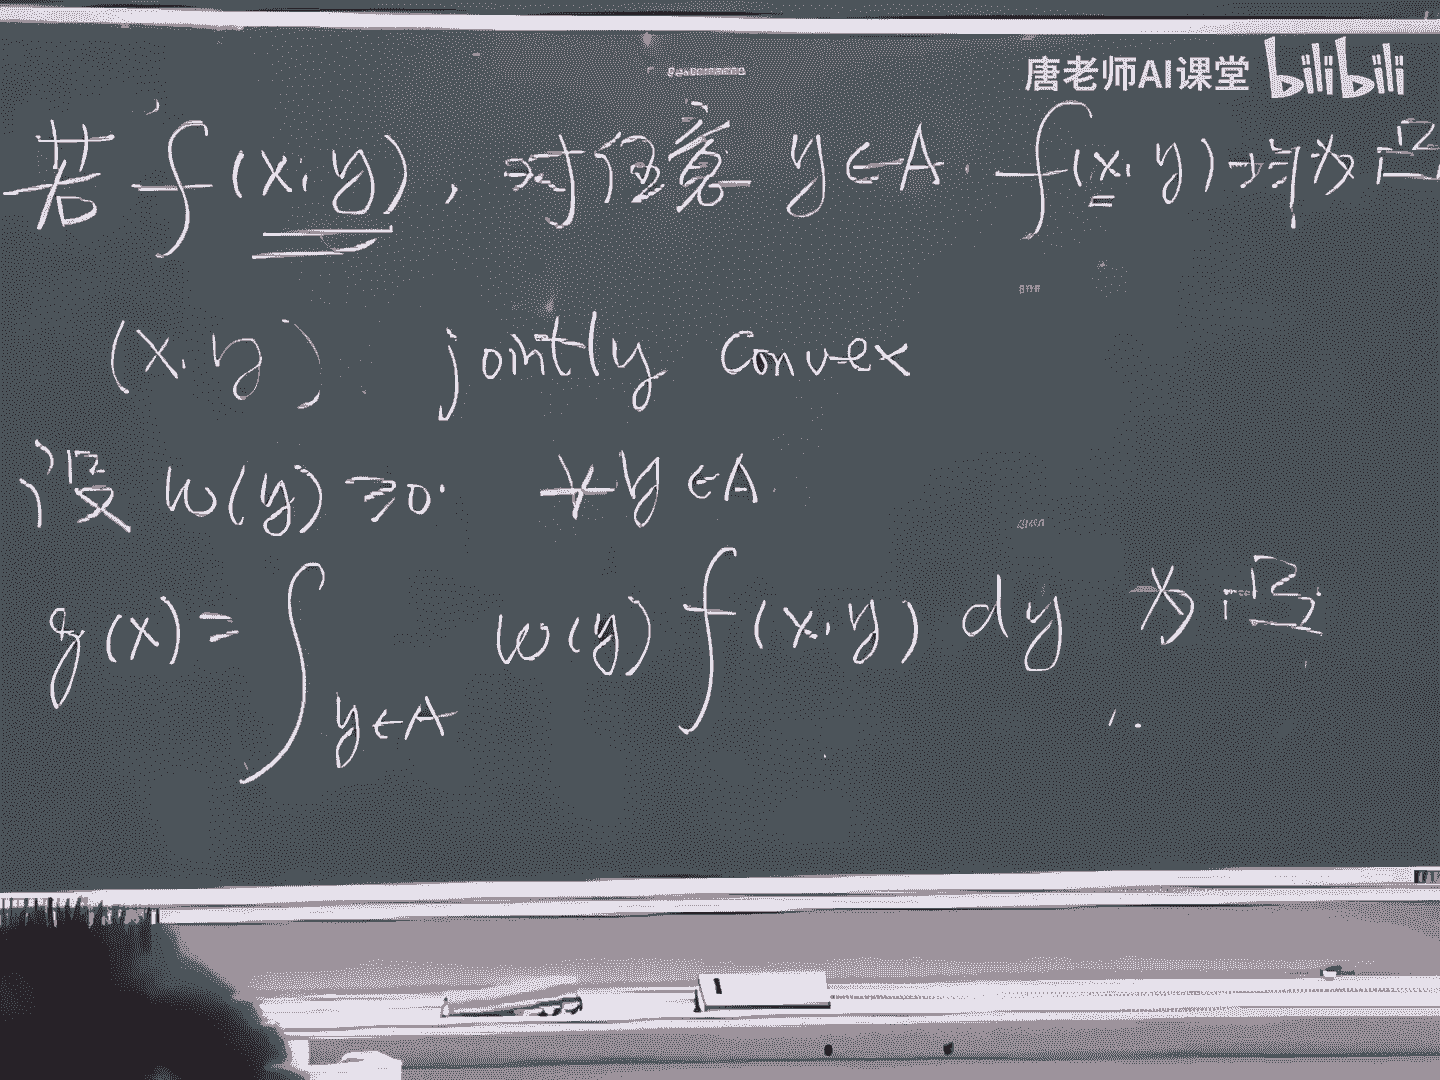 唐老师AI课堂 bilibili
若 f(x,y), 对任意 y∈A. f(x,y)均为凸
(x,y). jointly convex
设 w(y)≥0. ∀y∈A.
g(x)=∫_{y∈A} w(y) f(x,y) dy 为凸